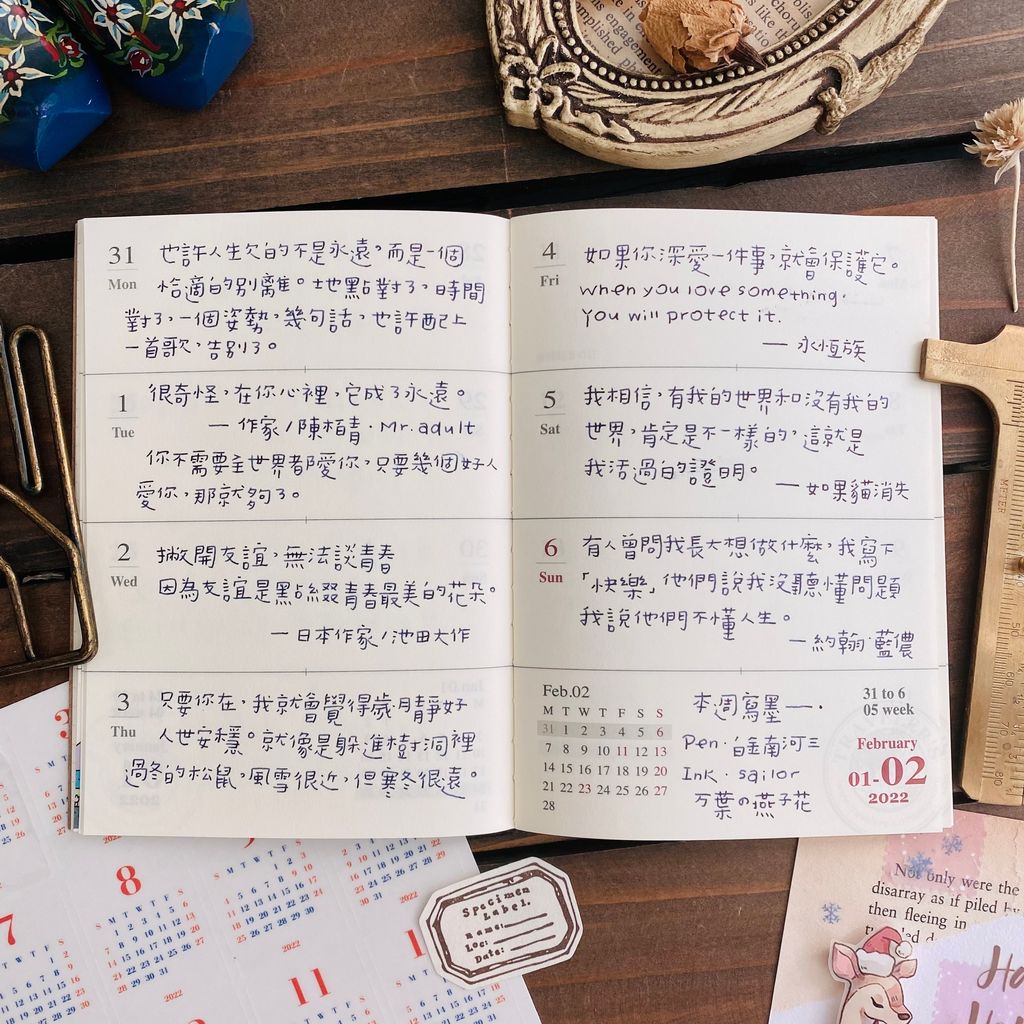 31
Mon
也許人生欠的不是永遠，而是一個
恰適的別離。地點對了，時間
對了，一個姿勢，幾句話，也許配上
一首歌，告別了。
1
Tue
很奇怪，在你心裡，它成了永遠。
— 作家/陳栢青·Mr. adult
你不需要全世界都愛你，只要幾個好人
愛你，那就夠了。
2
Wed
撇開友誼，無法談青春
因為友誼是點綴青春最美的花朵。
— 日本作家/池田大作
3
Thu
只要你在，我就會覺得歲月靜好
人世安穩。就像是躲進樹洞裡
過冬的松鼠，風雪很近，但寒冬很遠。
4
Fri
如果你深愛一件事，就會保護它。
When you love something.
You will protect it.
— 永恆族
5
Sat
我相信，有我的世界和沒有我的
世界，肯定是不一樣的，這就是
我活過的證明。
— 如果貓消失
6
Sun
有人曾問我長大想做什麼，我寫下
「快樂」他們說我沒聽懂問題
我說他們不懂人生。
— 約翰·藍儂
Feb.02
M T W T F S S
31 1 2 3 4 5 6
7 8 9 10 11 12 13
14 15 16 17 18 19 20
21 22 23 24 25 26 27
28
本週寫墨一.
Pen·白金南河三
Ink·sailor
万葉の燕子花
31 to 6
05 week
February
01-02
2022
Specimen
Label.
Name:
Loc:
Date:
8
7
11
2022
METER
Not only were the
disarray as if piled
then fleeing in